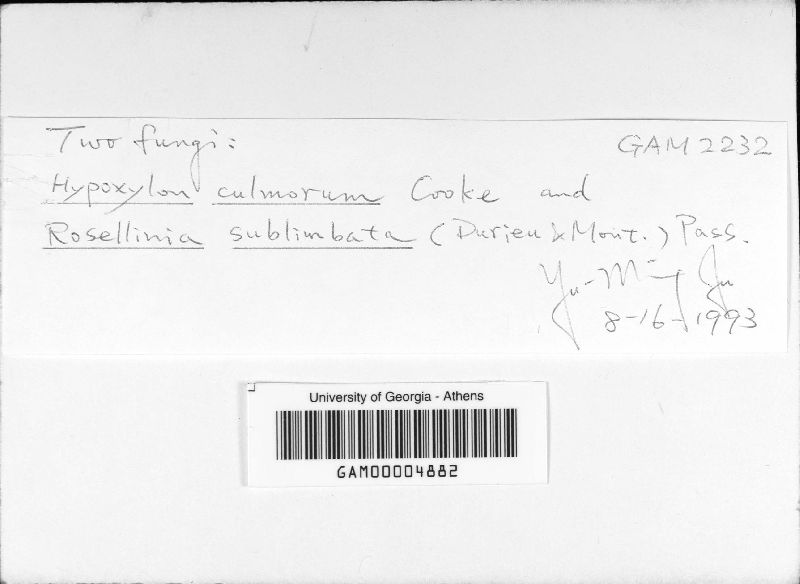 Two fungi:
GAM 2232
Hypoxylon culmorum Cooke and
Rosellinia sublimbata (Durieu & Mont.) Pass.
Yu-Ming Ju
8-16-1993
University of Georgia - Athens
GAM00004882